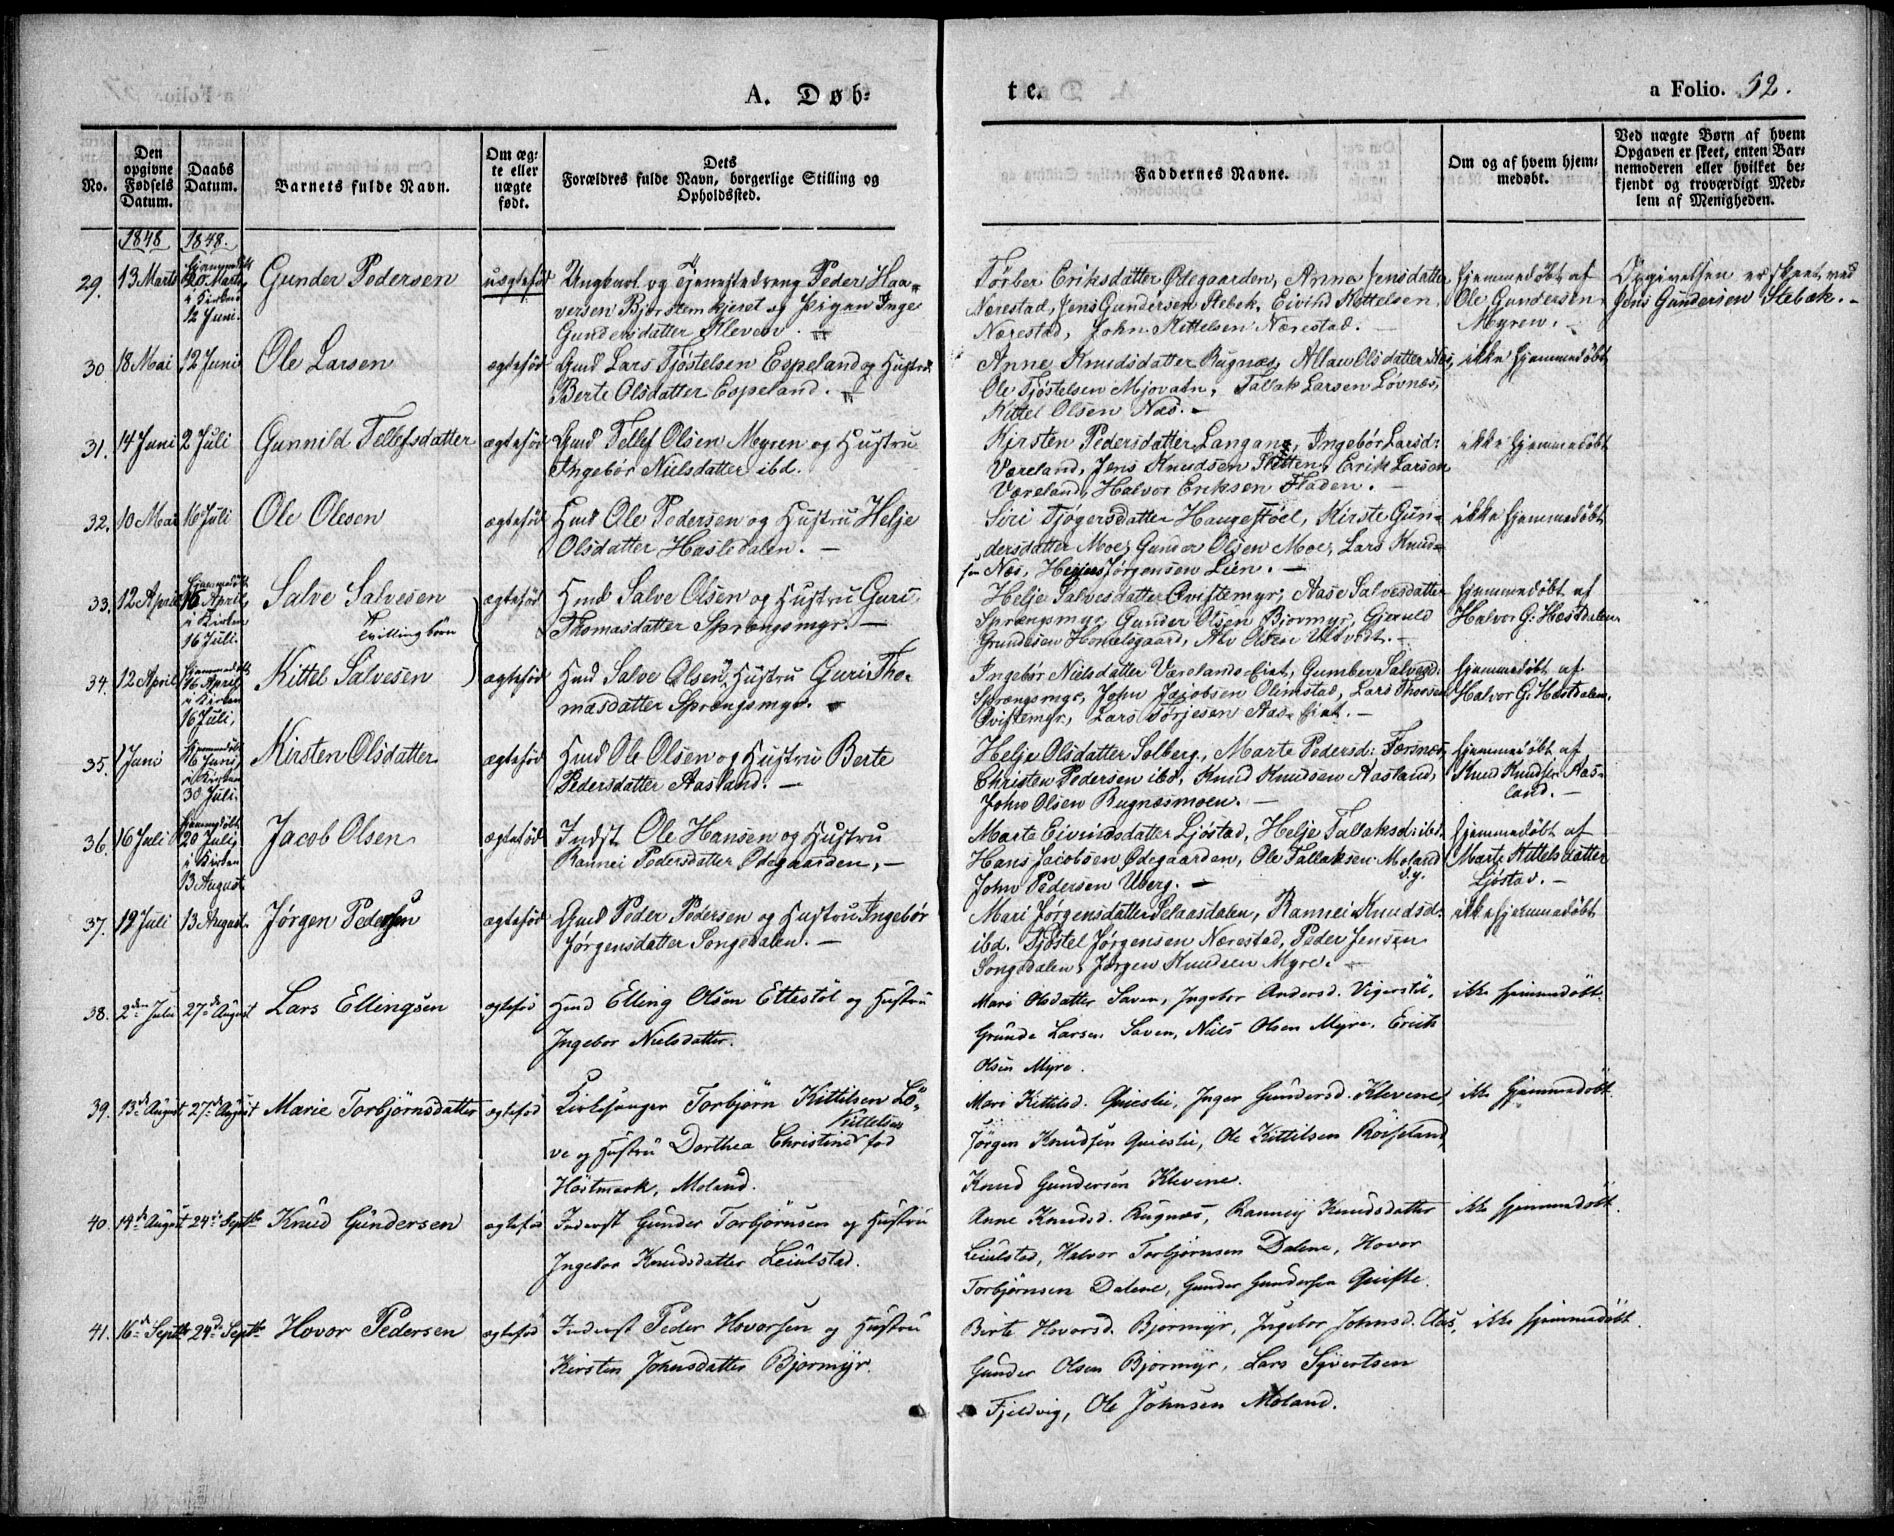 A. Døb-
te.
a Folio. 52.
No.
Den opgivne Fødsels Datum.
Daabs Datum.
Barnets fulde Navn.
Om ægte eller uægte født.
Dets Forældres fulde Navn, borgerlige Stilling og Opholdssted.
Faddernes Navne.
Om og af hvem hjemmedøbt.
Ved uægte Børn af hvem Opgaven er skeet, enten Barnemoderen eller hvilket bekjendt og troværdigt Medlem af Menigheden.
1848 1848.
29. 13 Marts hjemmedøbt 20 Marts, i Kirken 12 Juni. Gunder Pedersen uægtefød Ungkarl og Tjenestedreng Peder Haa-
versen Bjorstemkjeret og Pigen Inge
Gundersdatter Kleven. -
Tørber Eriksdatter Ødegaarden, Anne Jensdatter
Nærestad, Jens Gundersen Stebæk, Eivind Kittelsen
Nærestad, John Kittelsen Nærestad. -
hjemmedøbt af
Ole Gundersen
Myren. -
Opgivelsen er skeet ved
Jens Gundersen Stebæk. -
30. 18 Mai 12 Juni Ole Larsen ægtefød Gmd Lars Tjøstelsen Espeland og Hustru
Berte Olsdatter Espeland. -
Anne Knudsdatter Rugnæs, Olsdatter Næs,
Ole Tjøstelsen Mjovatn, Tallak Larsen Løvnæs,
Kittel Olsen Næs. -
ikke hjemmedøbt
31. 14 Juni 2 Juli Gunnild Tellefsdatter ægtefød Gmd Tellef Olsen Myren og Hustru
Ingebør Nielsdatter ibd.
Kirsten Pedersdatter Langang, Ingebør Larsd:
Væreland, Jens Knudsen Sletten, Erik Larsen
Væreland, Halvor Eriksen Fladen. -
ikke hjemmedøbt
32. 10 Mai 16 Juli Ole Olesen ægtefød Hmd Ole Pedersen og Hustru Helje
Olsdatter Hasledalen. -
Siri Tjøgersdatter Haugestøel, Kirste Gun-
dersdatter Moe, Gunder Olsen Moe, Lars Knud-
sen Næs, Jørgensen Lien. -
ikke hjemmedøbt
33. 12 April hjemmedøbt 16 April, i Kirken 16 Juli. Salve Salvesen
Tvillingbørn
ægtefød Hmd Salve Olsen og Hustru Guri
Thomasdatter Sprængsmyr. -
Helje Salvesdatter Qvistemyr, Aase Salvesdatter
Sprængsmyr, Gunder Olsen Bjormyr, Gjeruld
Grundesen Homelsgaard, Abv Olsen Ultvedt. -
hjemmedøbt af
Halvor G. Hæstdalen
34. 12 April hjemmedøbt 16 April, i Kirken 16 Juli, Kittel Salvesen ægtefød Hmd Salve Olsen, Hustru Guri Tho-
masdatter Sprængsmyr. -
Ingebør Nielsdatter Værelands Eiet, Gumber Salvesd:
Sprængsmyr, John Jacobsen Olimstad, Lars Thorsen
Qvistemyr, Lars Tørjesen Aas Eiet. -
hjemmedøbt af
Halvor G. Hæstdalen.
35. 1 Juni hjemmedøbt 16 Juni, i Kirken 30 Juli. Kirsten Olsdatter ægtefød Hmd Ole Olsen og Hustru Berte
Pedersdatter Aasland. -
Helje Olsdatter Solberg, Marte Pedersd: Forsnes
Christen Pedersen ibd, Knud Knudsen Aasland,
John Olsen Rugnæsmoen. -
hjemmedøbt af
Knud Knudsen Aas-
land. -
36. 16 Juli hjemmedøbt 20 Juli, i Kirken 13 August Jacob Olsen ægtefød Inds Ole Hansen og Hustru
Rannei Pedersdatter Ødegaarden, -
Marte Eivindsdatter Ljøstad, Helje Tallaksd: ibd.
Hans Jacobsen Ødegaarden, Ole Tallaksen Moland
d.y.
John Pedersen Uberg. -
hjemmedøbt af
Marte Kittelsdatter
Ljøstad. -
37. 12 Juli 13 August. Jørgen Pedersen ægtefød Gmd Peder Pedersen og Hustru Ingebør
Jørgensdatter Songedalen. -
Mari Jørgensdatter Selaasdalen, Rannei Knudsd:
ibd. Tjøstel Jørgensen Nærestad, Peder Jensen
Songedalen, Jørgen Knudsen Myre. -
ikke hjemmedøbt
38. 2den Juli 27de August Lars Ellingsen ægtefød Hmd Elling Olsen Ettestöl og Hustru
Ingebor Nielsdatter.
Mari Olsdatter Saven, Ingebor Andersd. Vigerstöl,
Grunde Larsen Saven, Niels Olsen Myre, Erich
Olsen Myre.
ikke hjemmedøbt.
39. 13de August 27de August Marie Torbjørnsdatter ægtefød Kirkesanger Torbjörn Kittilsen Lö-
Kittelsen
ve og Hustru Dorthea Christine fød
Höstmark, Moland.
Mari Kittilsd. Qvieslie, Inger Gundersd. Klevene,
Jörgen Knudsen Qvieslie, Ole Kittilsen Röiseland
Knud Gundersen Klevene.
ikke hjemmedøbt.
40. 14de August 24de Septbr Knud Gundersen ægtefød Inderst Gunder Torbjörnsen og Hustru
Ingebor Knudsdatter Leiulstad.
Anne Knudsd. Rugnæs, Ranneij Knudsdatter
Leiulstad, Halvor Torbjørnsen Dalene, Hovor
Torbjørnsen Dalene, Gunder Gundersen Qviste.
ikke hjemmedøbt.
41. 16de Septbr 24de Septbr Hovor Pedersen ægtefød Inderst Peder Hovorsen og Hustru
Kirsten Johnsdatter Bjormyr.
Birte Hovorsd. Bjormyr, Ingebor Johnsd. Aas,
Gunder Olsen Bjormyr, Lars Syvertsen
Fjeldvig, Ole Johnsen Moland.
ikke hjemmedøbt.